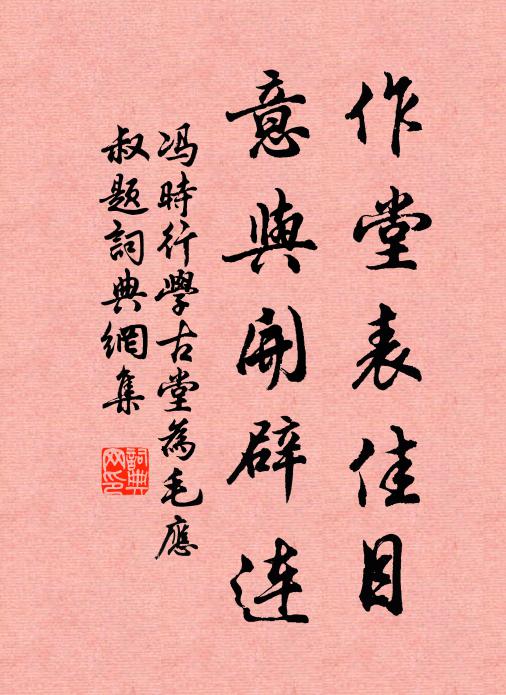 作堂表佳目
意與開辟連
冯時行學古堂為毛應
叔題詞典網集
詞典网印